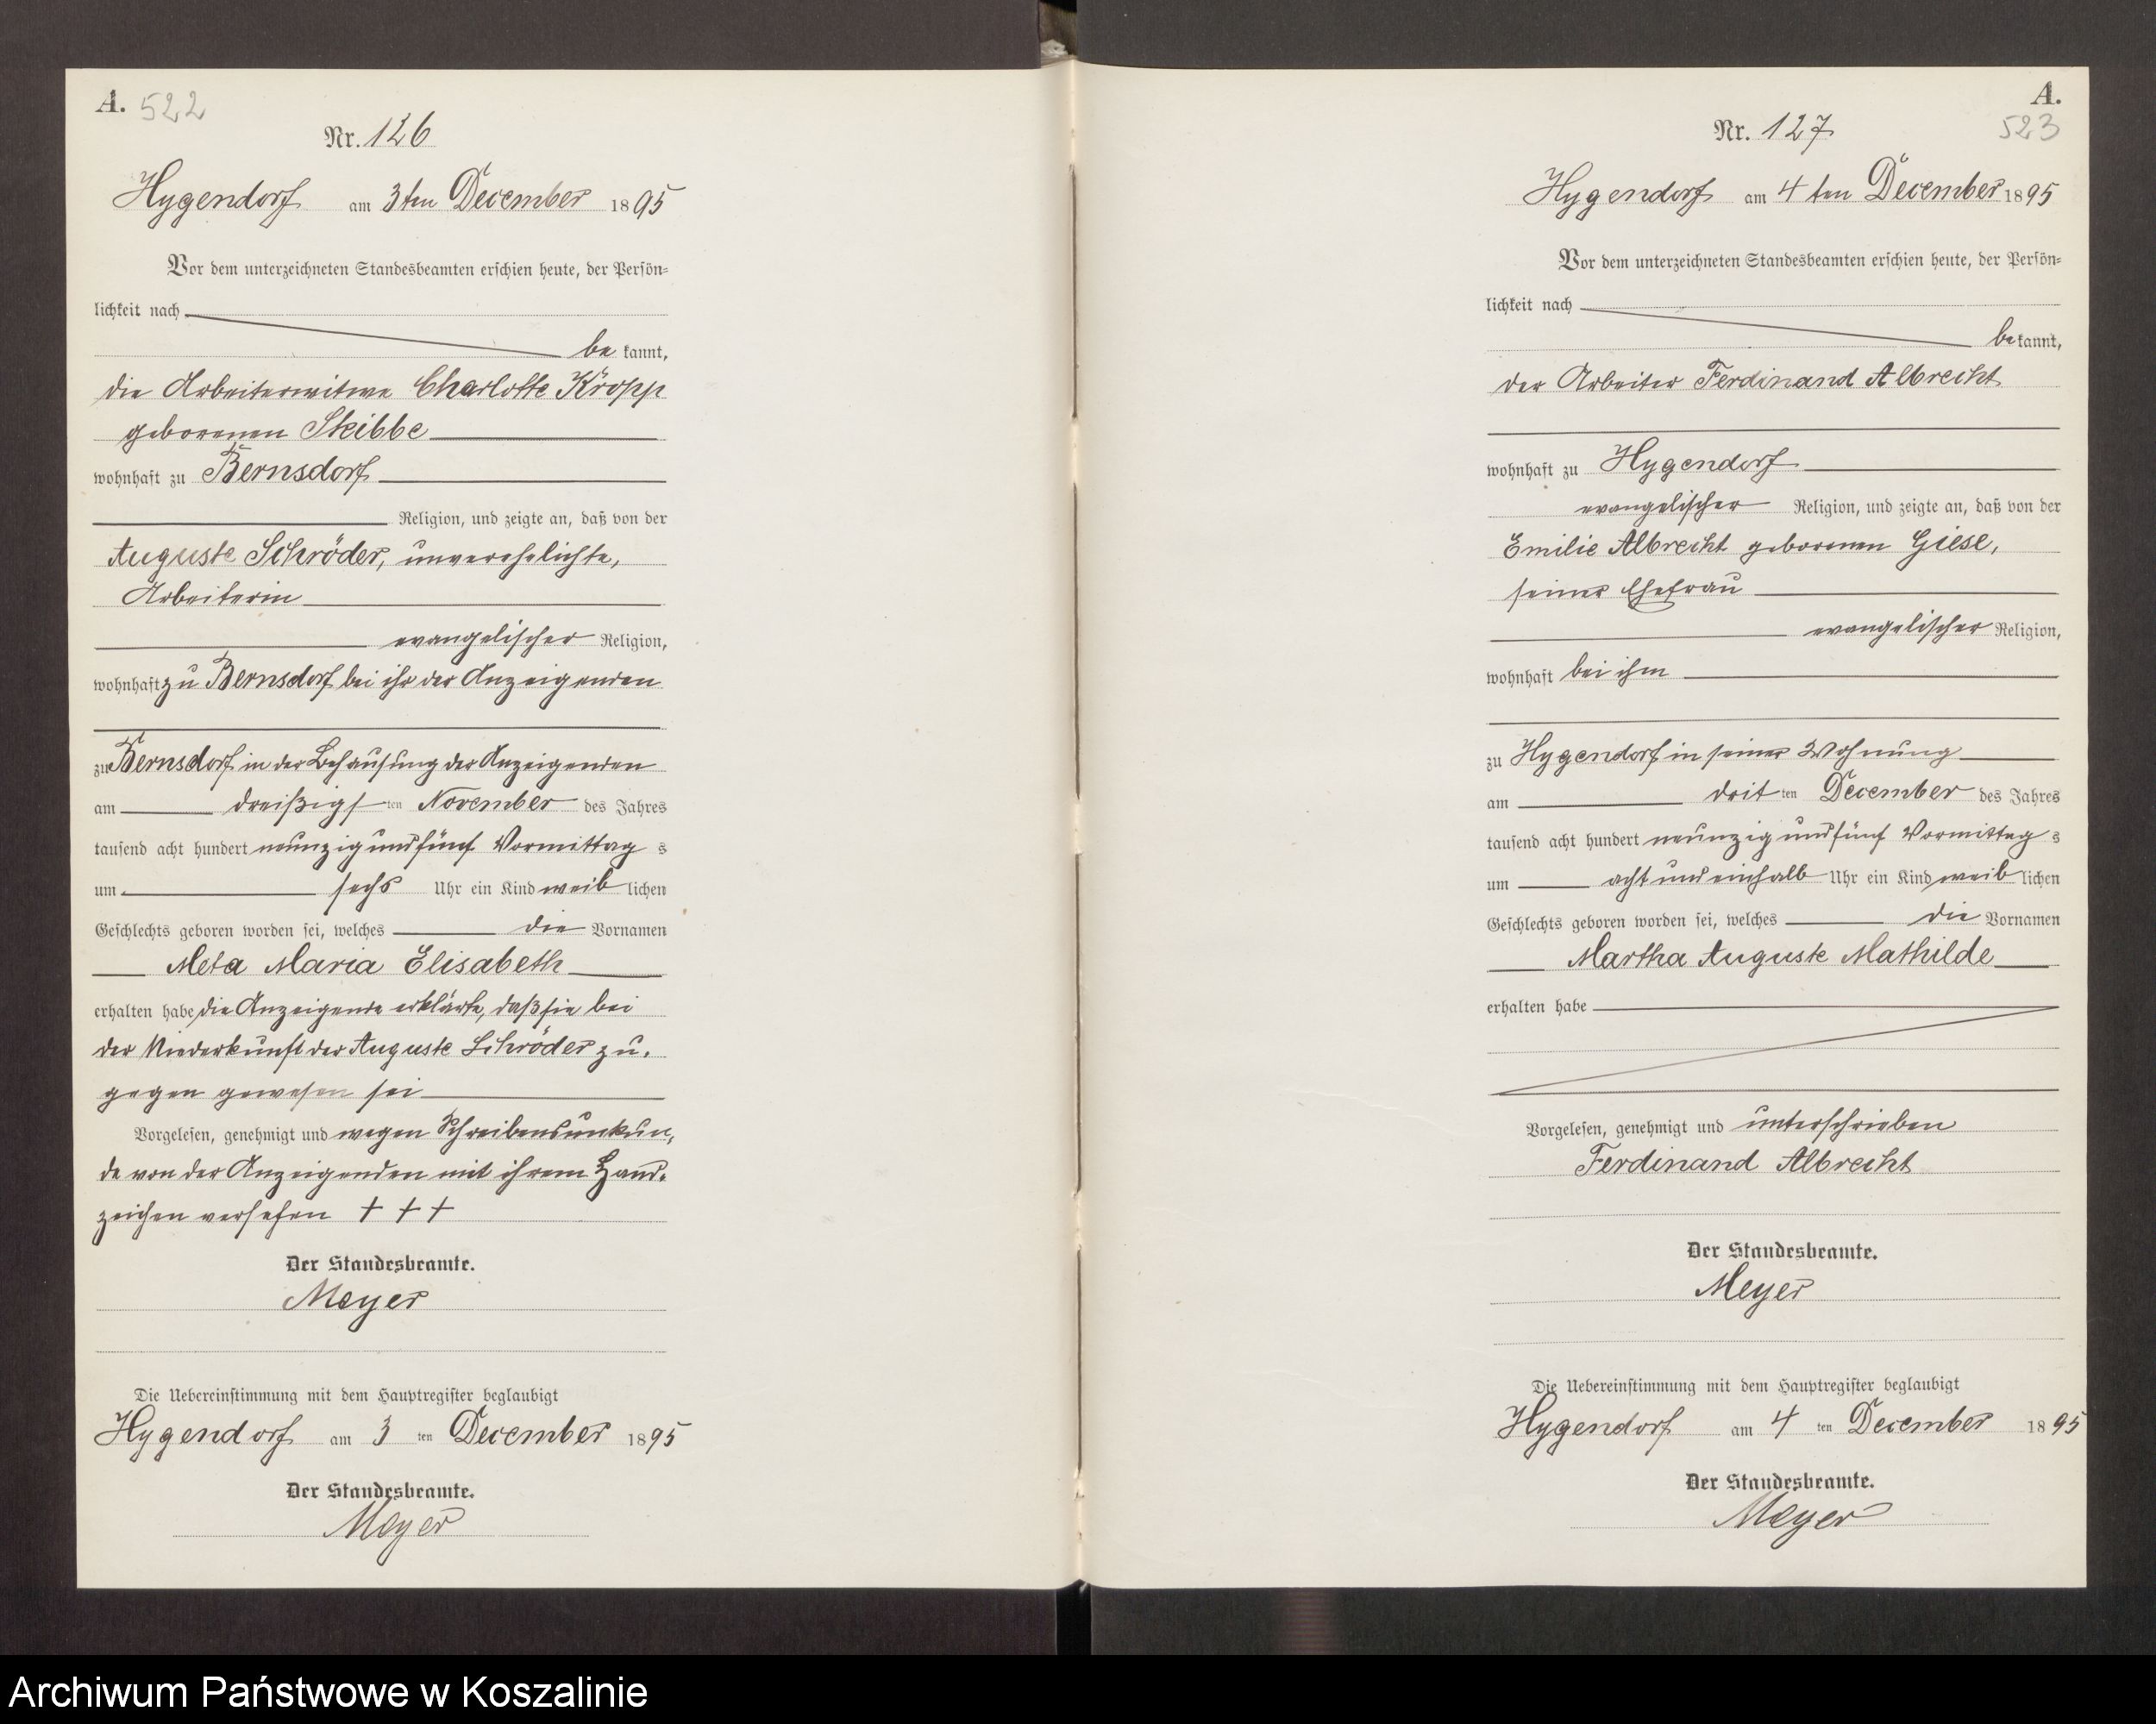 A. 522
Nr. 126
Hygendorf am 3ten December 1895
Vor dem unterzeichneten Standesbeamten erschien heute, der Persön-
lichkeit nach
be kannt,
die Arbeiterwitwe Charlotte Kropp
geborenen Skibbe
wohnhaft zu Bernsdorf
Religion, und zeigte an, daß von der
Auguste Schröder, unverehelichte,
Arbeiterin
evangelischer Religion,
wohnhaft zu Bernsdorf bei ihr der Anzeigenden
zu Bernsdorf in der Behausung der Anzeigenden
am dreißigsten November des Jahres
tausend acht hundert neunzig und fünf Vormittag s
um sechs Uhr ein Kind weib lichen
Geschlechts geboren worden sei, welches die Vornamen
Meta Maria Elisabeth
erhalten habe die Anzeigende erklärte, daß sie bei
der Niederkunft der Auguste Schröder zu-
gegen gewesen sei
Vorgelesen, genehmigt und wegen Schreibensunkun-
de von der Anzeigenden mit ihrem Hand-
zeichen versehen + + +
Der Standesbeamte.
Meyer
Die Uebereinstimmung mit dem Hauptregister beglaubigt
Hygendorf am 3 ten December 1895
Der Standesbeamte.
Meyer
A.
523
Nr. 127
Hygendorf am 4ten December 1895
Vor dem unterzeichneten Standesbeamten erschien heute, der Persön-
lichkeit nach
be kannt,
der Arbeiter Ferdinand Albrecht
wohnhaft zu Hygendorf
evangelischer Religion, und zeigte an, daß von der
Emilie Albrecht geborenen Giese,
seiner Ehefrau
evangelischer Religion,
wohnhaft bei ihm
zu Hygendorf in seiner Wohnung
am dritten December des Jahres
tausend acht hundert neunzig und fünf Vormittag s
um acht und einhalb Uhr ein Kind weib lichen
Geschlechts geboren worden sei, welches die Vornamen
Martha Auguste Mathilde
erhalten habe
Vorgelesen, genehmigt und unterschrieben
Ferdinand Albrecht
Der Standesbeamte.
Meyer
Die Uebereinstimmung mit dem Hauptregister beglaubigt
Hygendorf am 4 ten December 1895
Der Standesbeamte.
Meyer
Archiwum Państwowe w Koszalinie